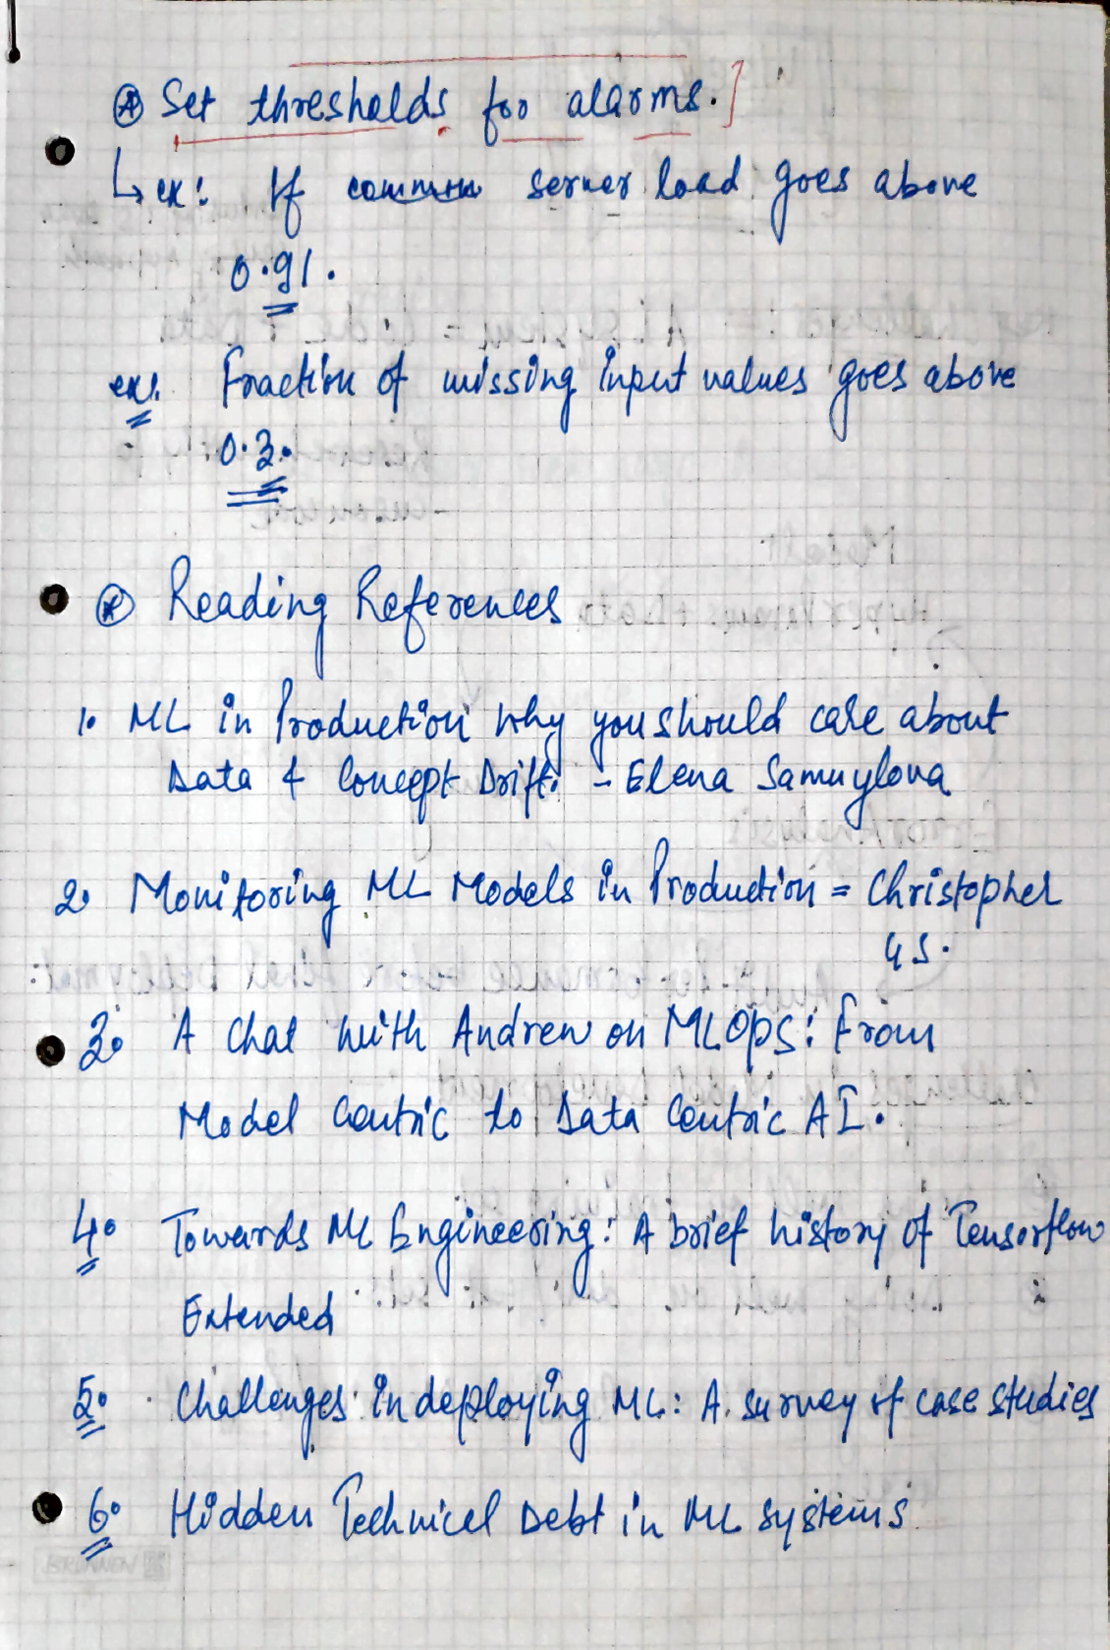 Set thresholds for alarms.]
↳ ex: If server load goes above
0.91.
ex. Fraction of missing input values goes above
0.3.
Reading References
1. ML in Production why you should care about
Data & Concept Drift. - Elena Samuylova
2. Monitoring ML Models in Production = Christopher
GS.
3. A Chat with Andrew on MLOps: From
Model Centric to Data Centric AI.
4. Towards ML Engineering: A brief history of Tensorflow
Extended
5. Challenges in deploying ML: A survey of case studies
6. Hidden Technical Debt in ML systems
BRUNNEN